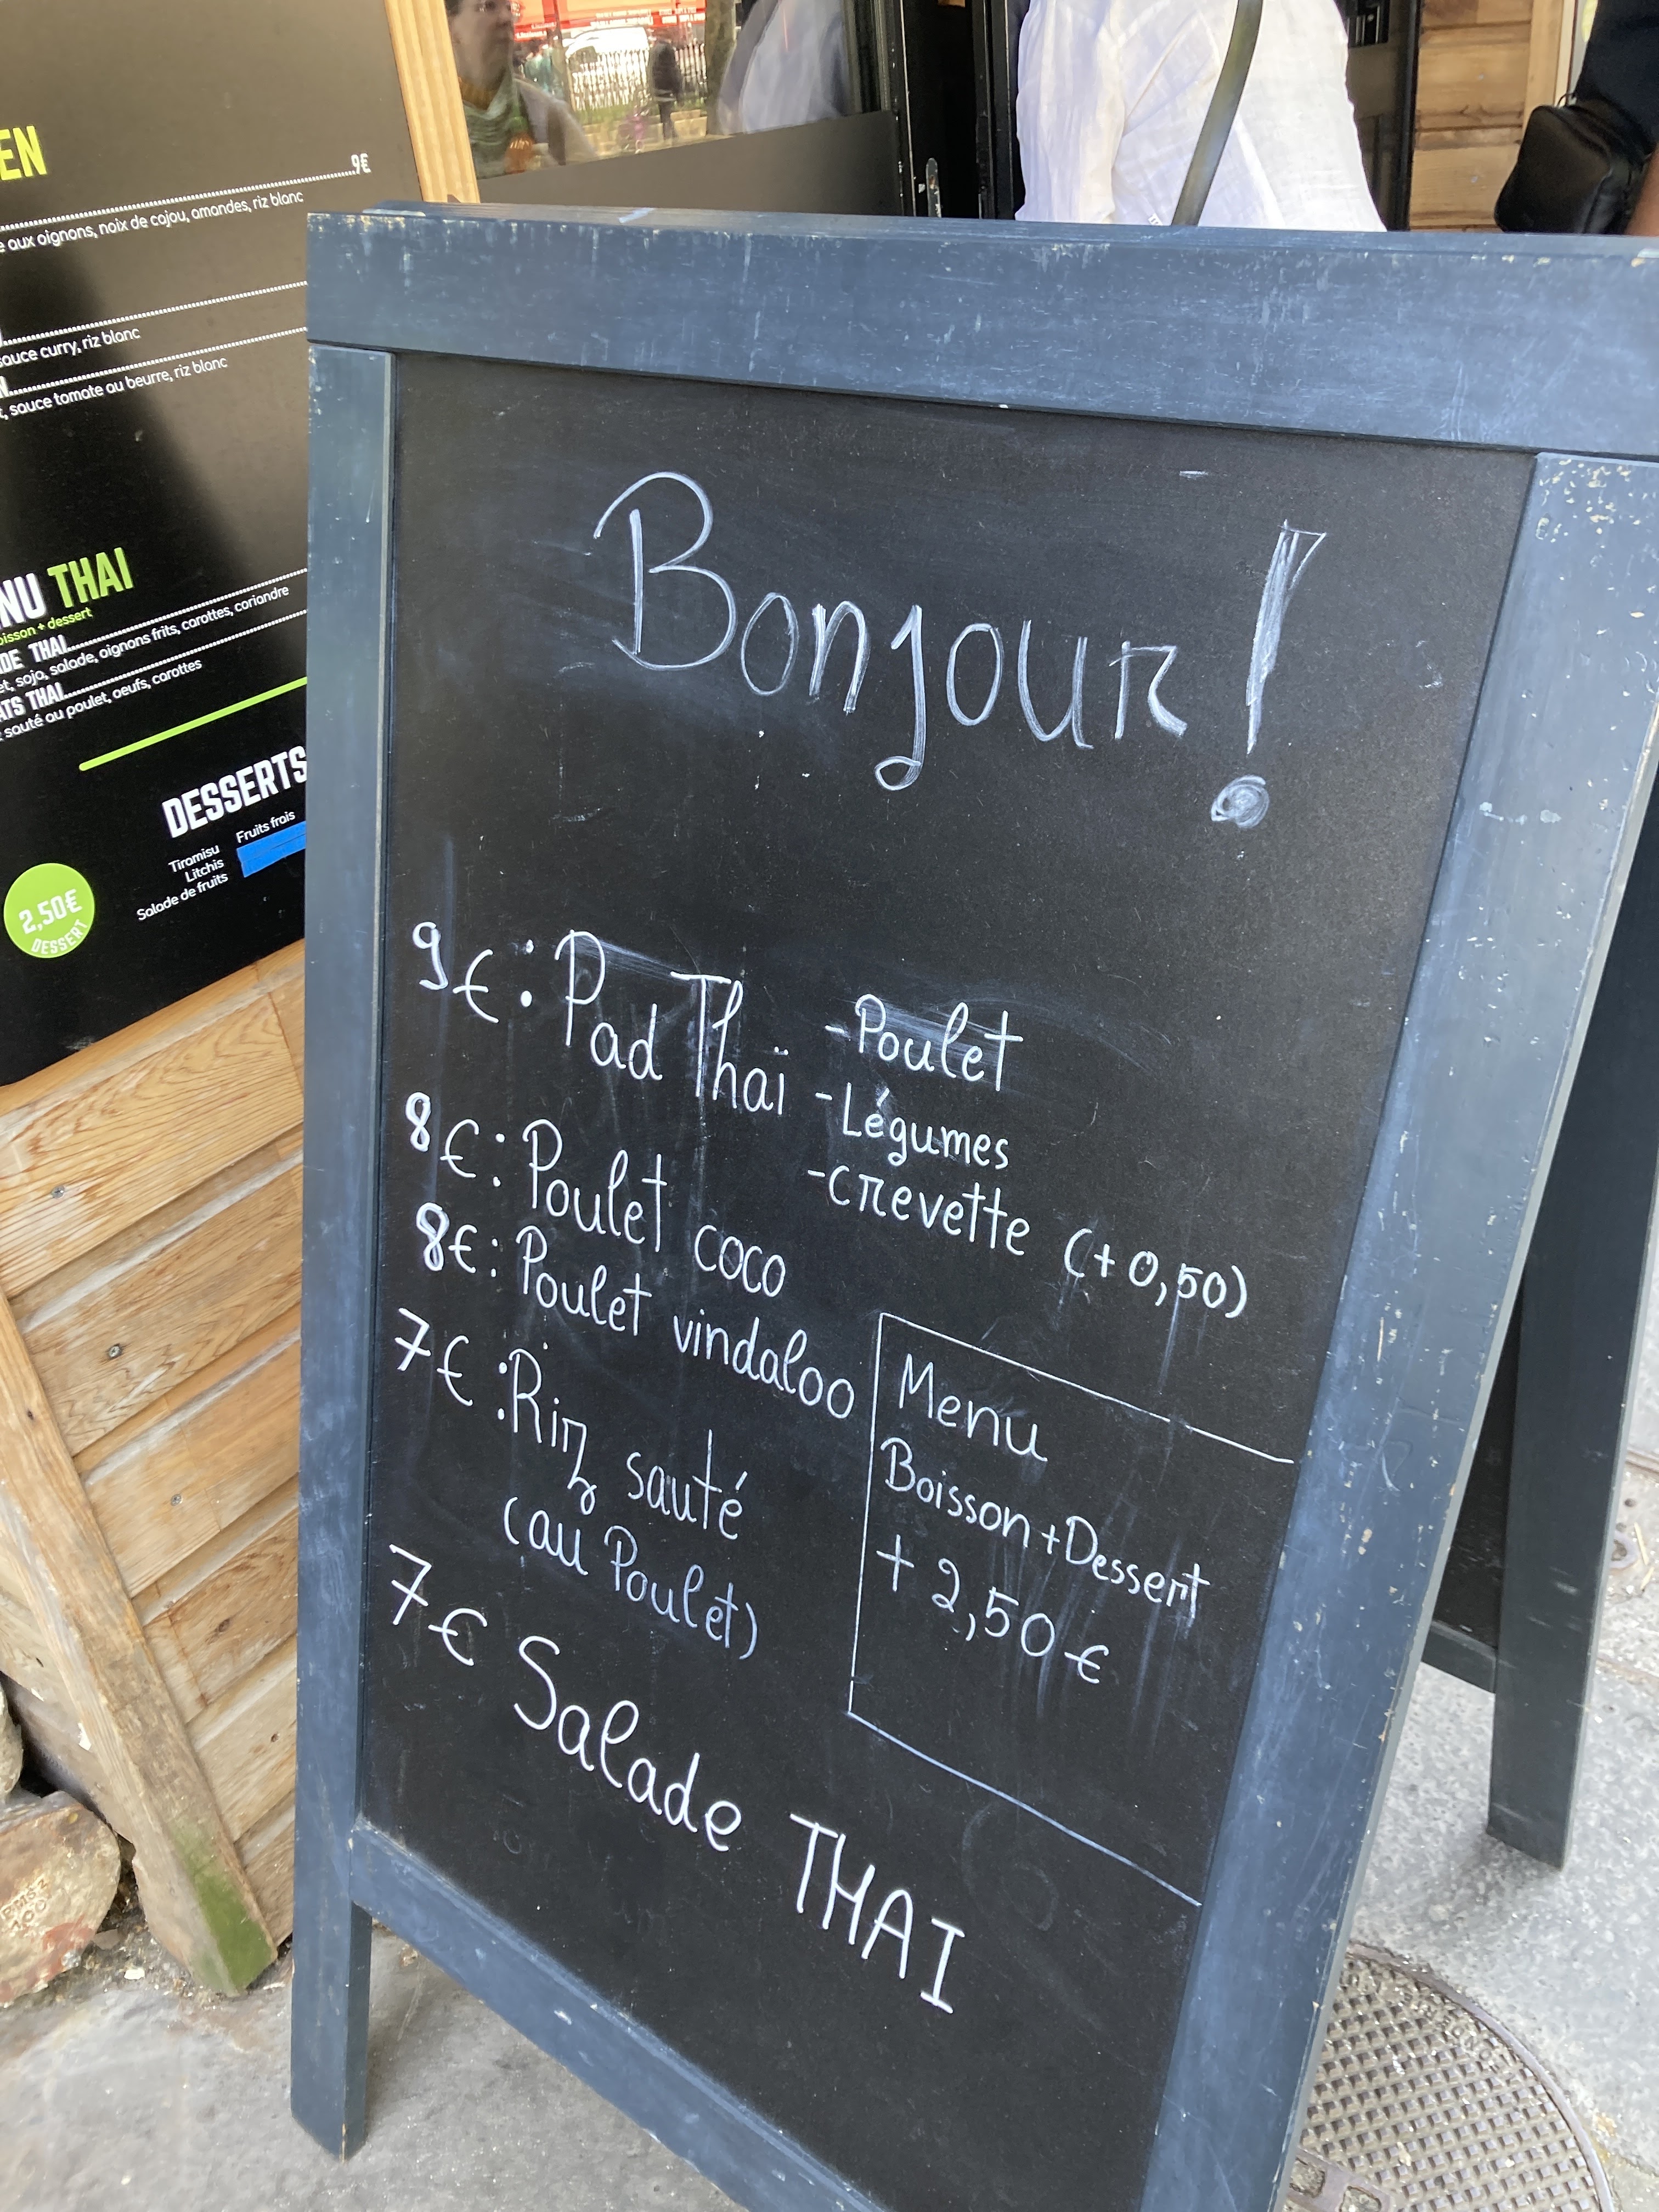 EN
9€
aux oignons, noix de cajou, amandes, riz blanc
sauce curry, riz blanc
sauce tomate au beurre, riz blanc
THAI
+ dessert
THAI
soja, salade, oignons frits, carottes, coriandre
THAI
sauté au poulet, oeufs, carottes
DESSERTS
Fruits frais
Tiramisu
Litchis
Salade de fruits
2,50€
DESSERT
Bonjour !
9€: Pad Thaï -Poulet
-Légumes
-crevette (+0,50)
8€: Poulet coco
8€: Poulet vindaloo
7€: Riz sauté
(au Poulet)
7€ Salade THAI
Menu
Boisson+Dessert
+ 2,50€